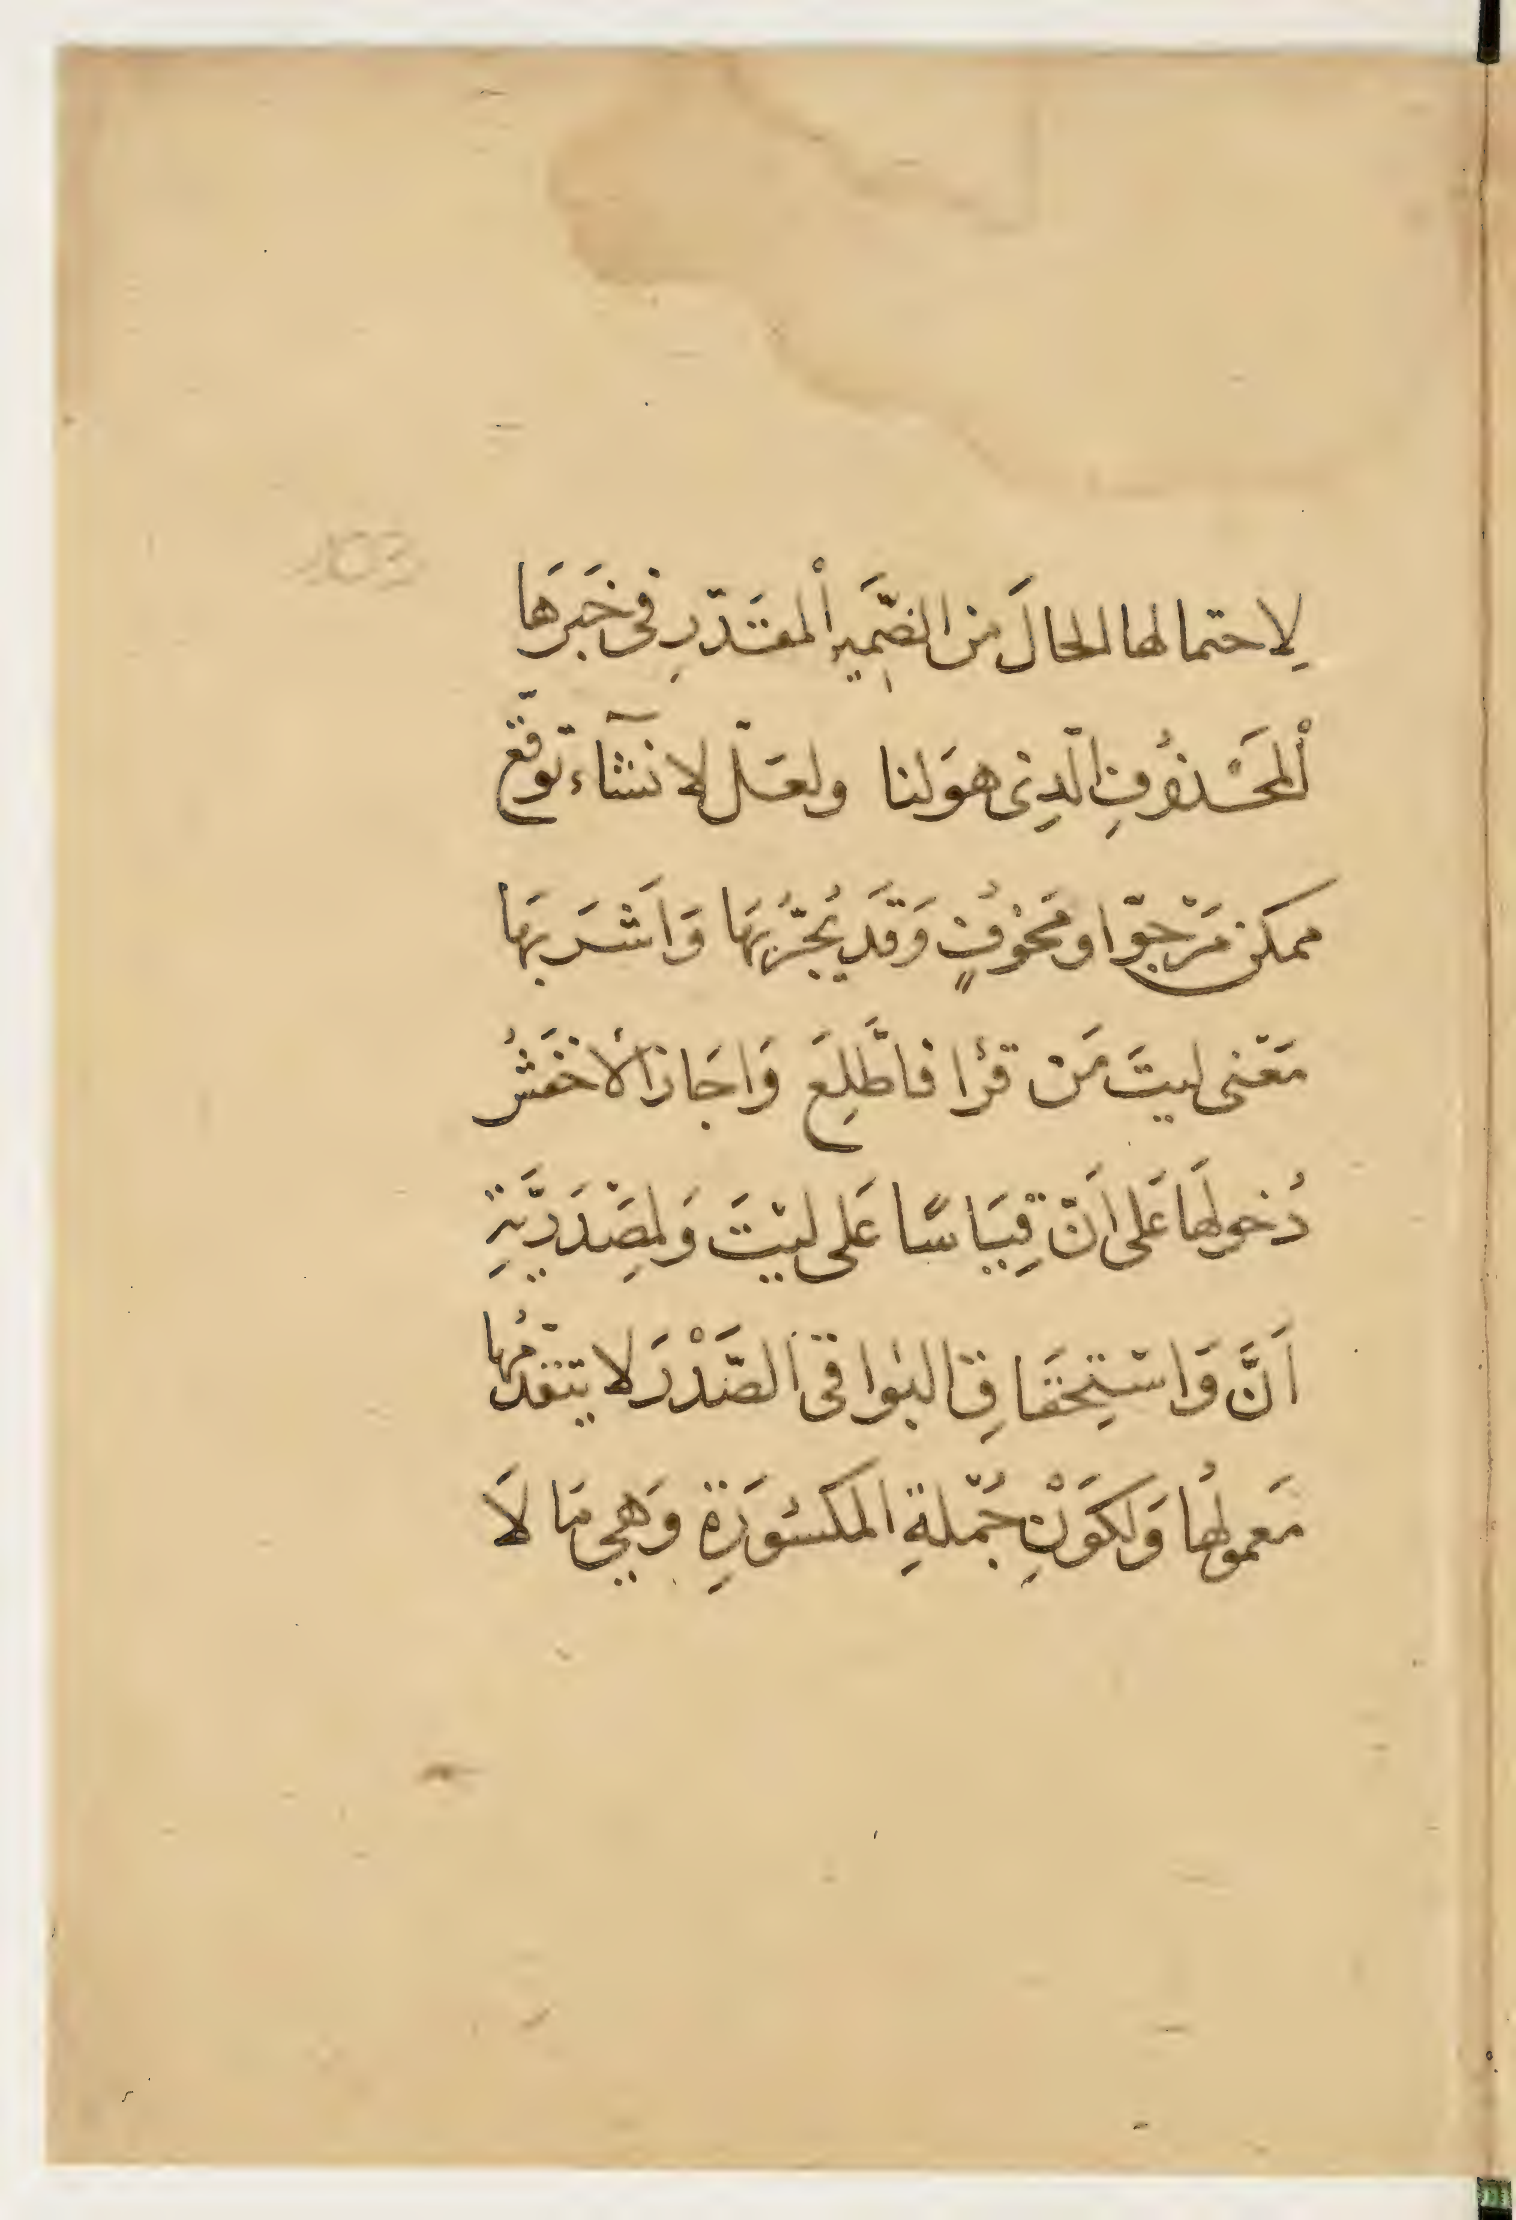 لِاحتمالها الحالَ من الضَّمِيرِ اْلمقَدّرِ فى خَبَرِهَا
اْلمَحْذُوفِ الّذِى هوَ لنا ولعَلّ لانشآء توقّع
ممكن مَرْجوّا ومَخوُفٍ وَقَد يُجَرُّ بَهَا وَاَشْرَبهَا
مَعْنى ليتَ مَنْ قرُا فاطَّلِعَ وَاجَازَ الأخفَشُ
دُخولهَا عَلى اَنّ قِيَاسًا عَلى ليْتَ وَلِمصْدَرِيَّةِ
اَنَّ وَاسْتِحقَاقِ البوَاقى الصَّدْرَ لا يتقدّمُها
مَعمولُهَا وَلِكَوْنِ جُمْلةِ المكسُورَةِ وَهِي مَا لَا